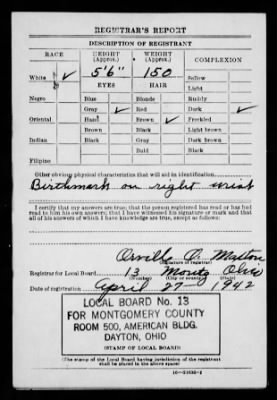 REGISTRAR'S REPORT
DESCRIPTION OF REGISTRANT
RACE HEIGHT (Approx.) WEIGHT (Approx.) COMPLEXION
White ✓ 5'6" 150 Sallow
EYES HAIR Light
Negro Blue Blonde Ruddy
Gray ✓ Red Dark ✓
Oriental Hazel Brown ✓ Freckled
Brown Black Light brown
Indian Black Gray Dark brown
Bald Black
Filipino
Other obvious physical characteristics that will aid in identification
Birthmark on right wrist
I certify that my answers are true; that the person registered has read or has had
read to him his own answers; that I have witnessed his signature or mark and that
all of his answers of which I have knowledge are true, except as follows:
Orville O.
(Signature of registrar)
Registrar for Local Board 13 Montg Ohio
(Number) (City or county) (State)
Date of registration April 27 1942
LOCAL BOARD No. 13
FOR MONTGOMERY COUNTY
ROOM 500, AMERICAN BLDG.
DAYTON, OHIO
(STAMP OF LOCAL BOARD)
(The stamp of the Local Board having jurisdiction of the registrant
shall be placed in the above space)